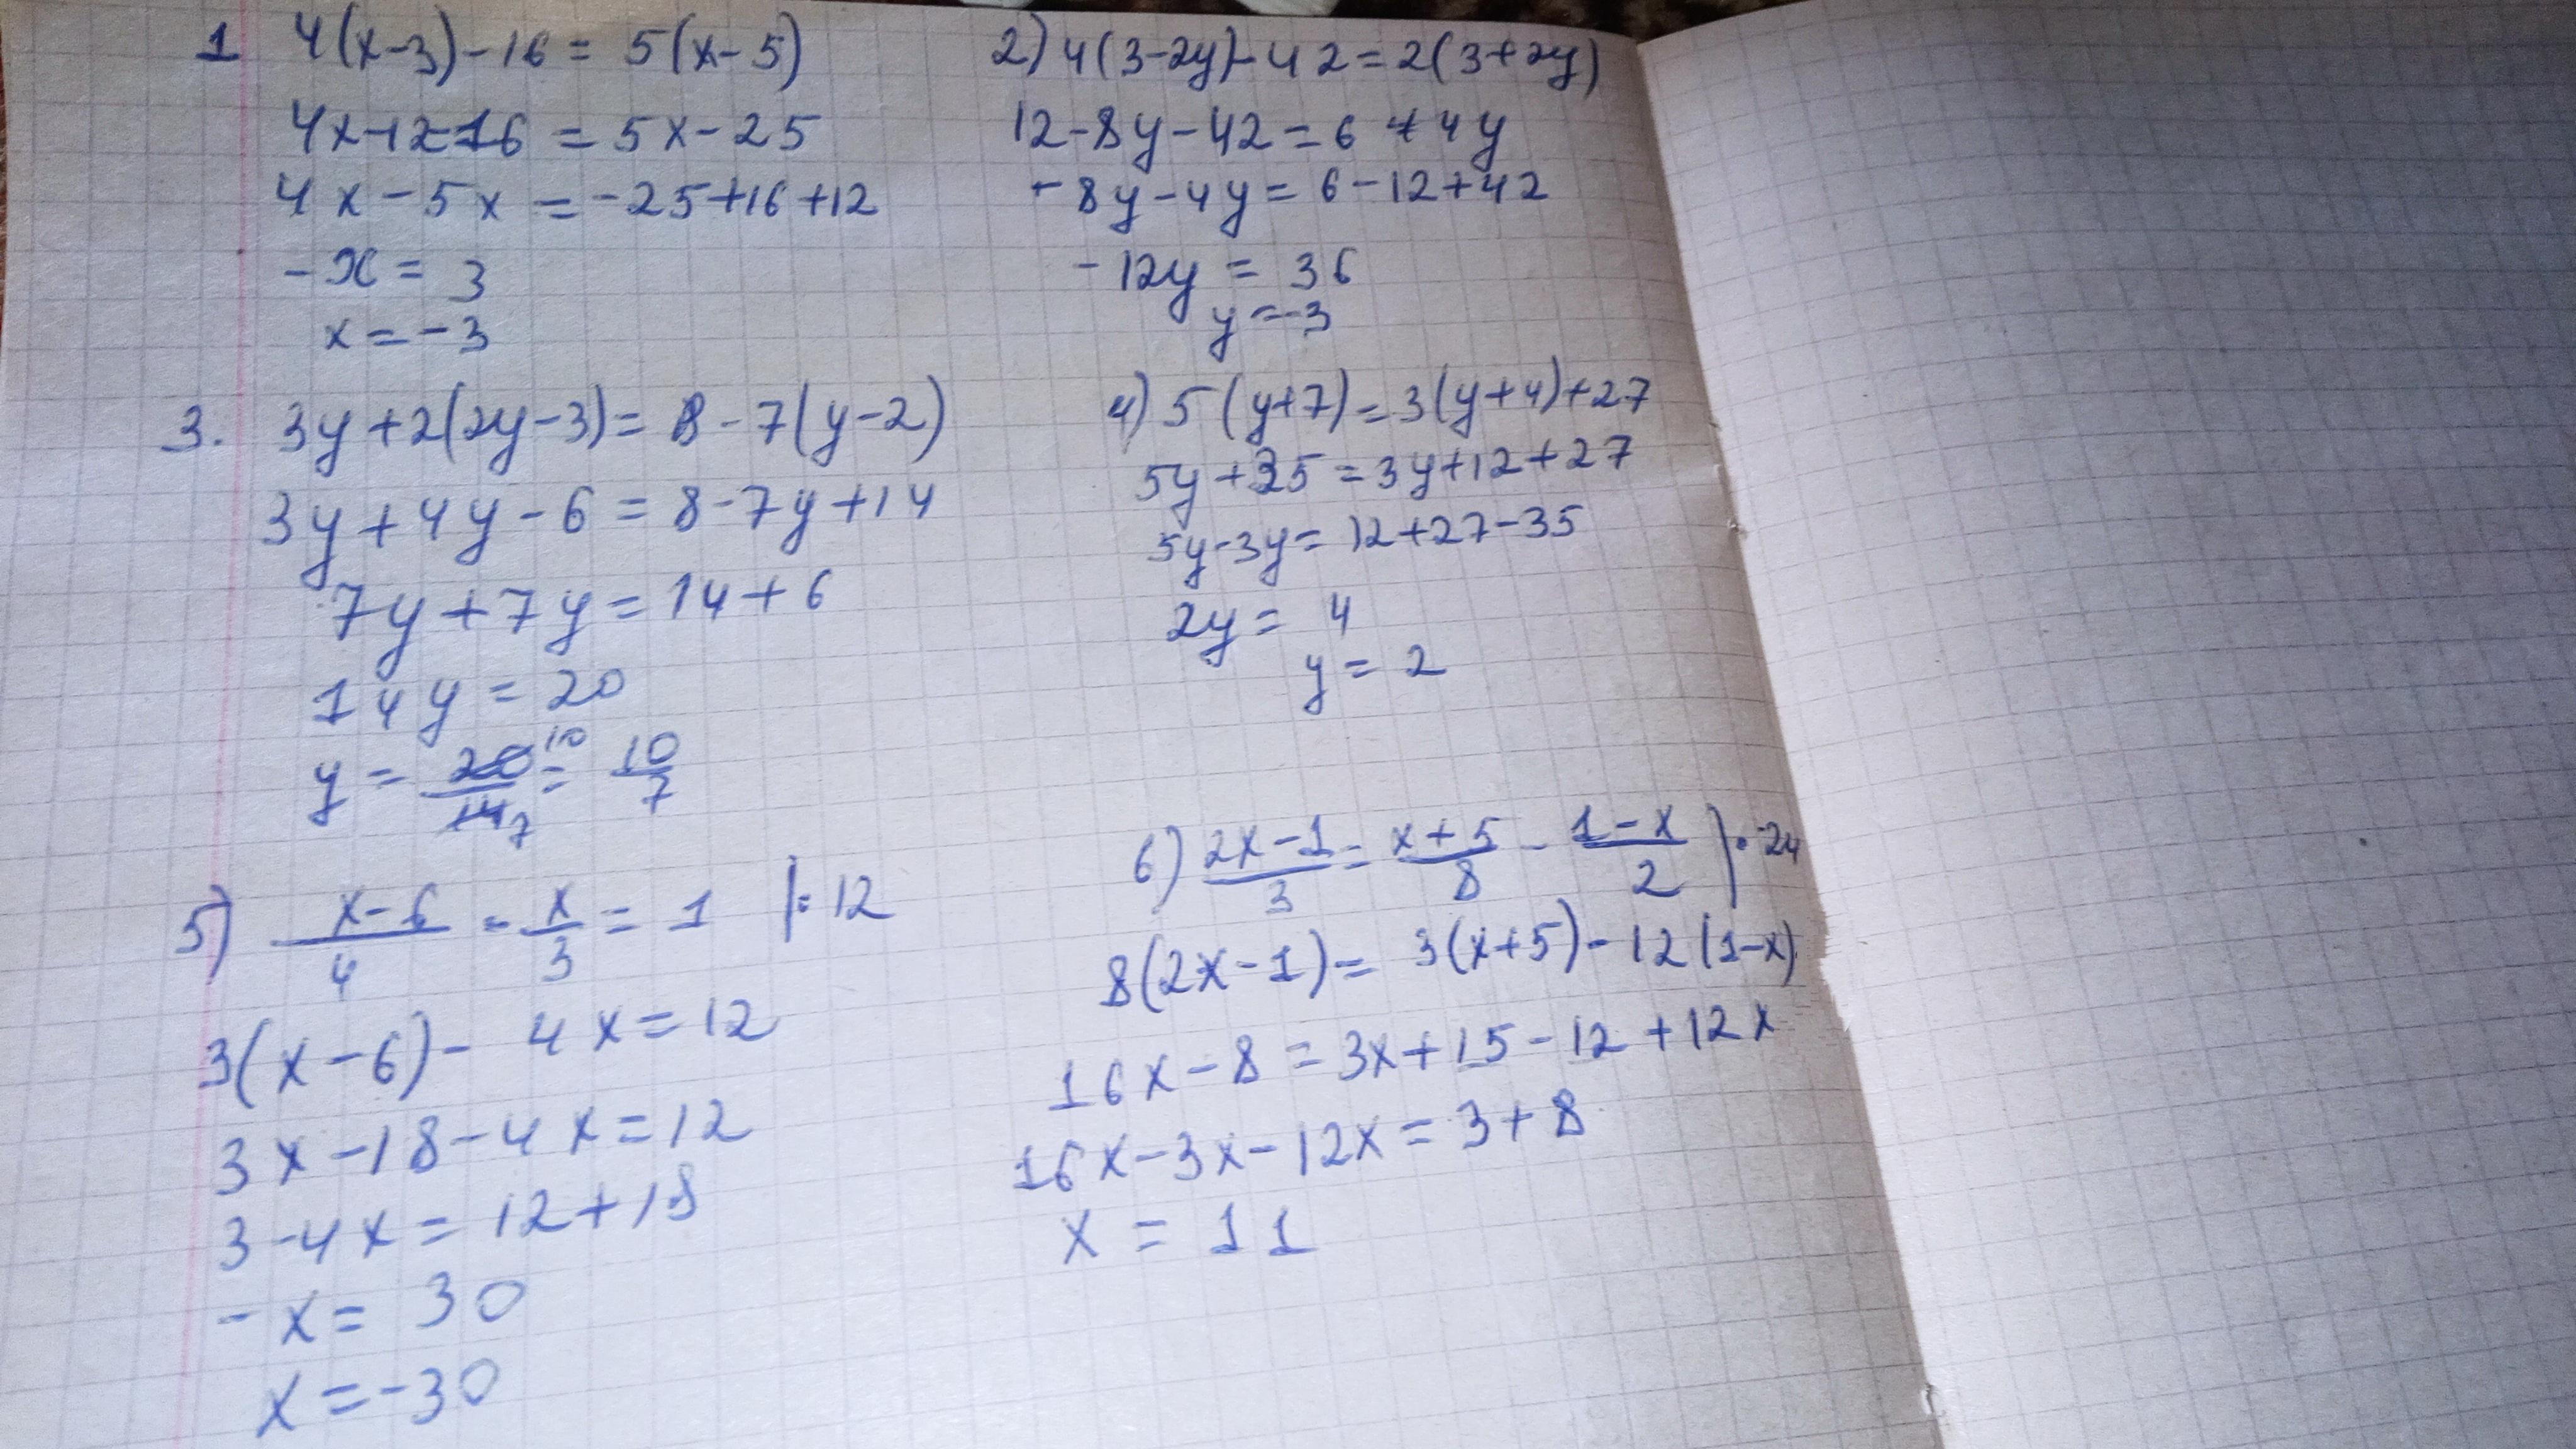 1 4(x-3)-16 = 5(x-5)
4x-12-16 = 5x-25
4x-5x = -25+16+12
-x = 3
x = -3
2) 4(3-2y)-42=2(3+2y)
12-8y-42=6+4y
-8y-4y=6-12+42
-12y = 36
y=-3
3. 3y+2(2y-3)=8-7(y-2)
3y+4y-6=8-7y+14
7y+7y=14+6
14y=20
y = 20/14 10 7 = 10/7
4) 5(y+7)=3(y+4)+27
5y+35=3y+12+27
5y-3y=12+27-35
2y= 4
y = 2
5) (x-6)/4 - x/3 = 1 |·12
3(x-6)-4x=12
3x-18-4x=12
3-4x=12+18
-x=30
x=-30
6) (2x-1)/3 = (x+5)/8 - (1-x)/2 |·24
8(2x-1)=3(x+5)-12(1-x)
16x-8=3x+15-12+12x
16x-3x-12x=3+8
x = 11